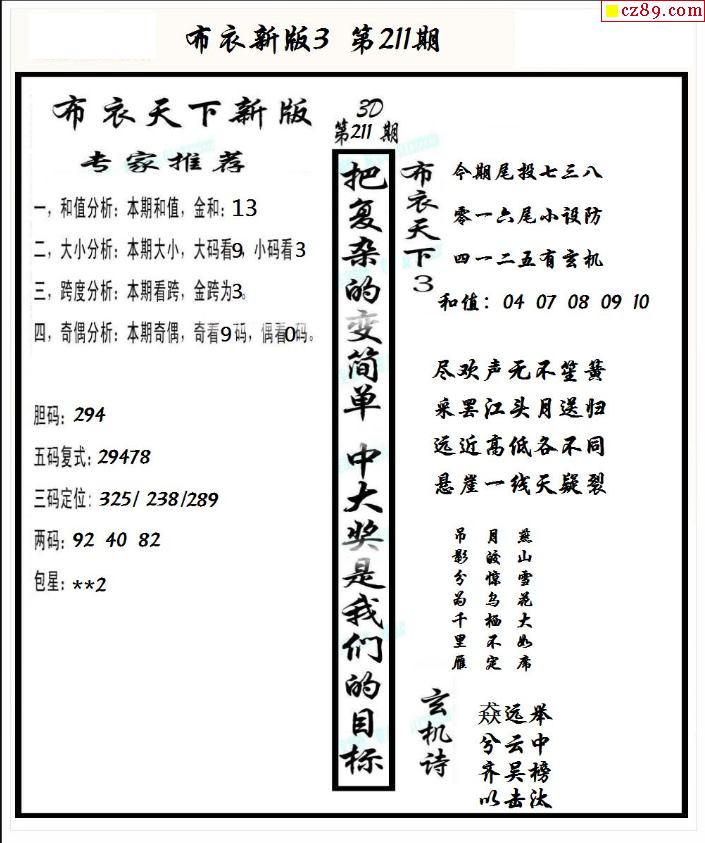 cz89.com
布衣新版3 第211期
布衣天下新版
专家推荐
一，和值分析：本期和值，金和：13
二，大小分析：本期大小，大码看9，小码看3
三，跨度分析：本期看跨，金跨为3。
四，奇偶分析：本期奇偶，奇看9码，偶看0码。
胆码：294
五码复式：29478
三码定位：325/ 238/289
两码：92 40 82
包星：**2
3D
第211 期
把复杂的变简单 中大奖是我们的目标
布衣天下3
今期尾投七三八
零一六尾小设防
四一二五有玄机
和值：04 07 08 09 10
尽欢声无不笙簧
采罢江头月送归
远近高低各不同
悬崖一线天疑裂
燕山雪花大如席
月皎惊乌栖不定
吊影分为千里雁
玄机诗
猋远举
兮云中
齐吴榜
以击汰